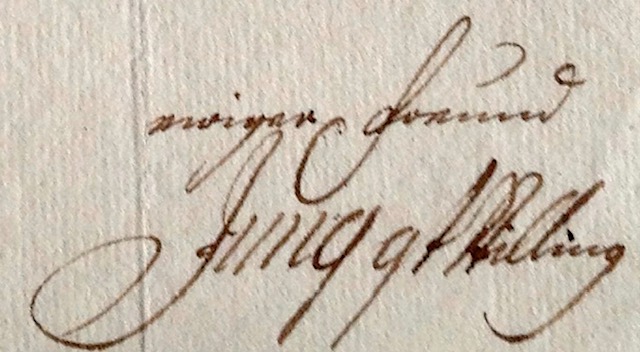 ewiger Freund
Jung gt Stilling